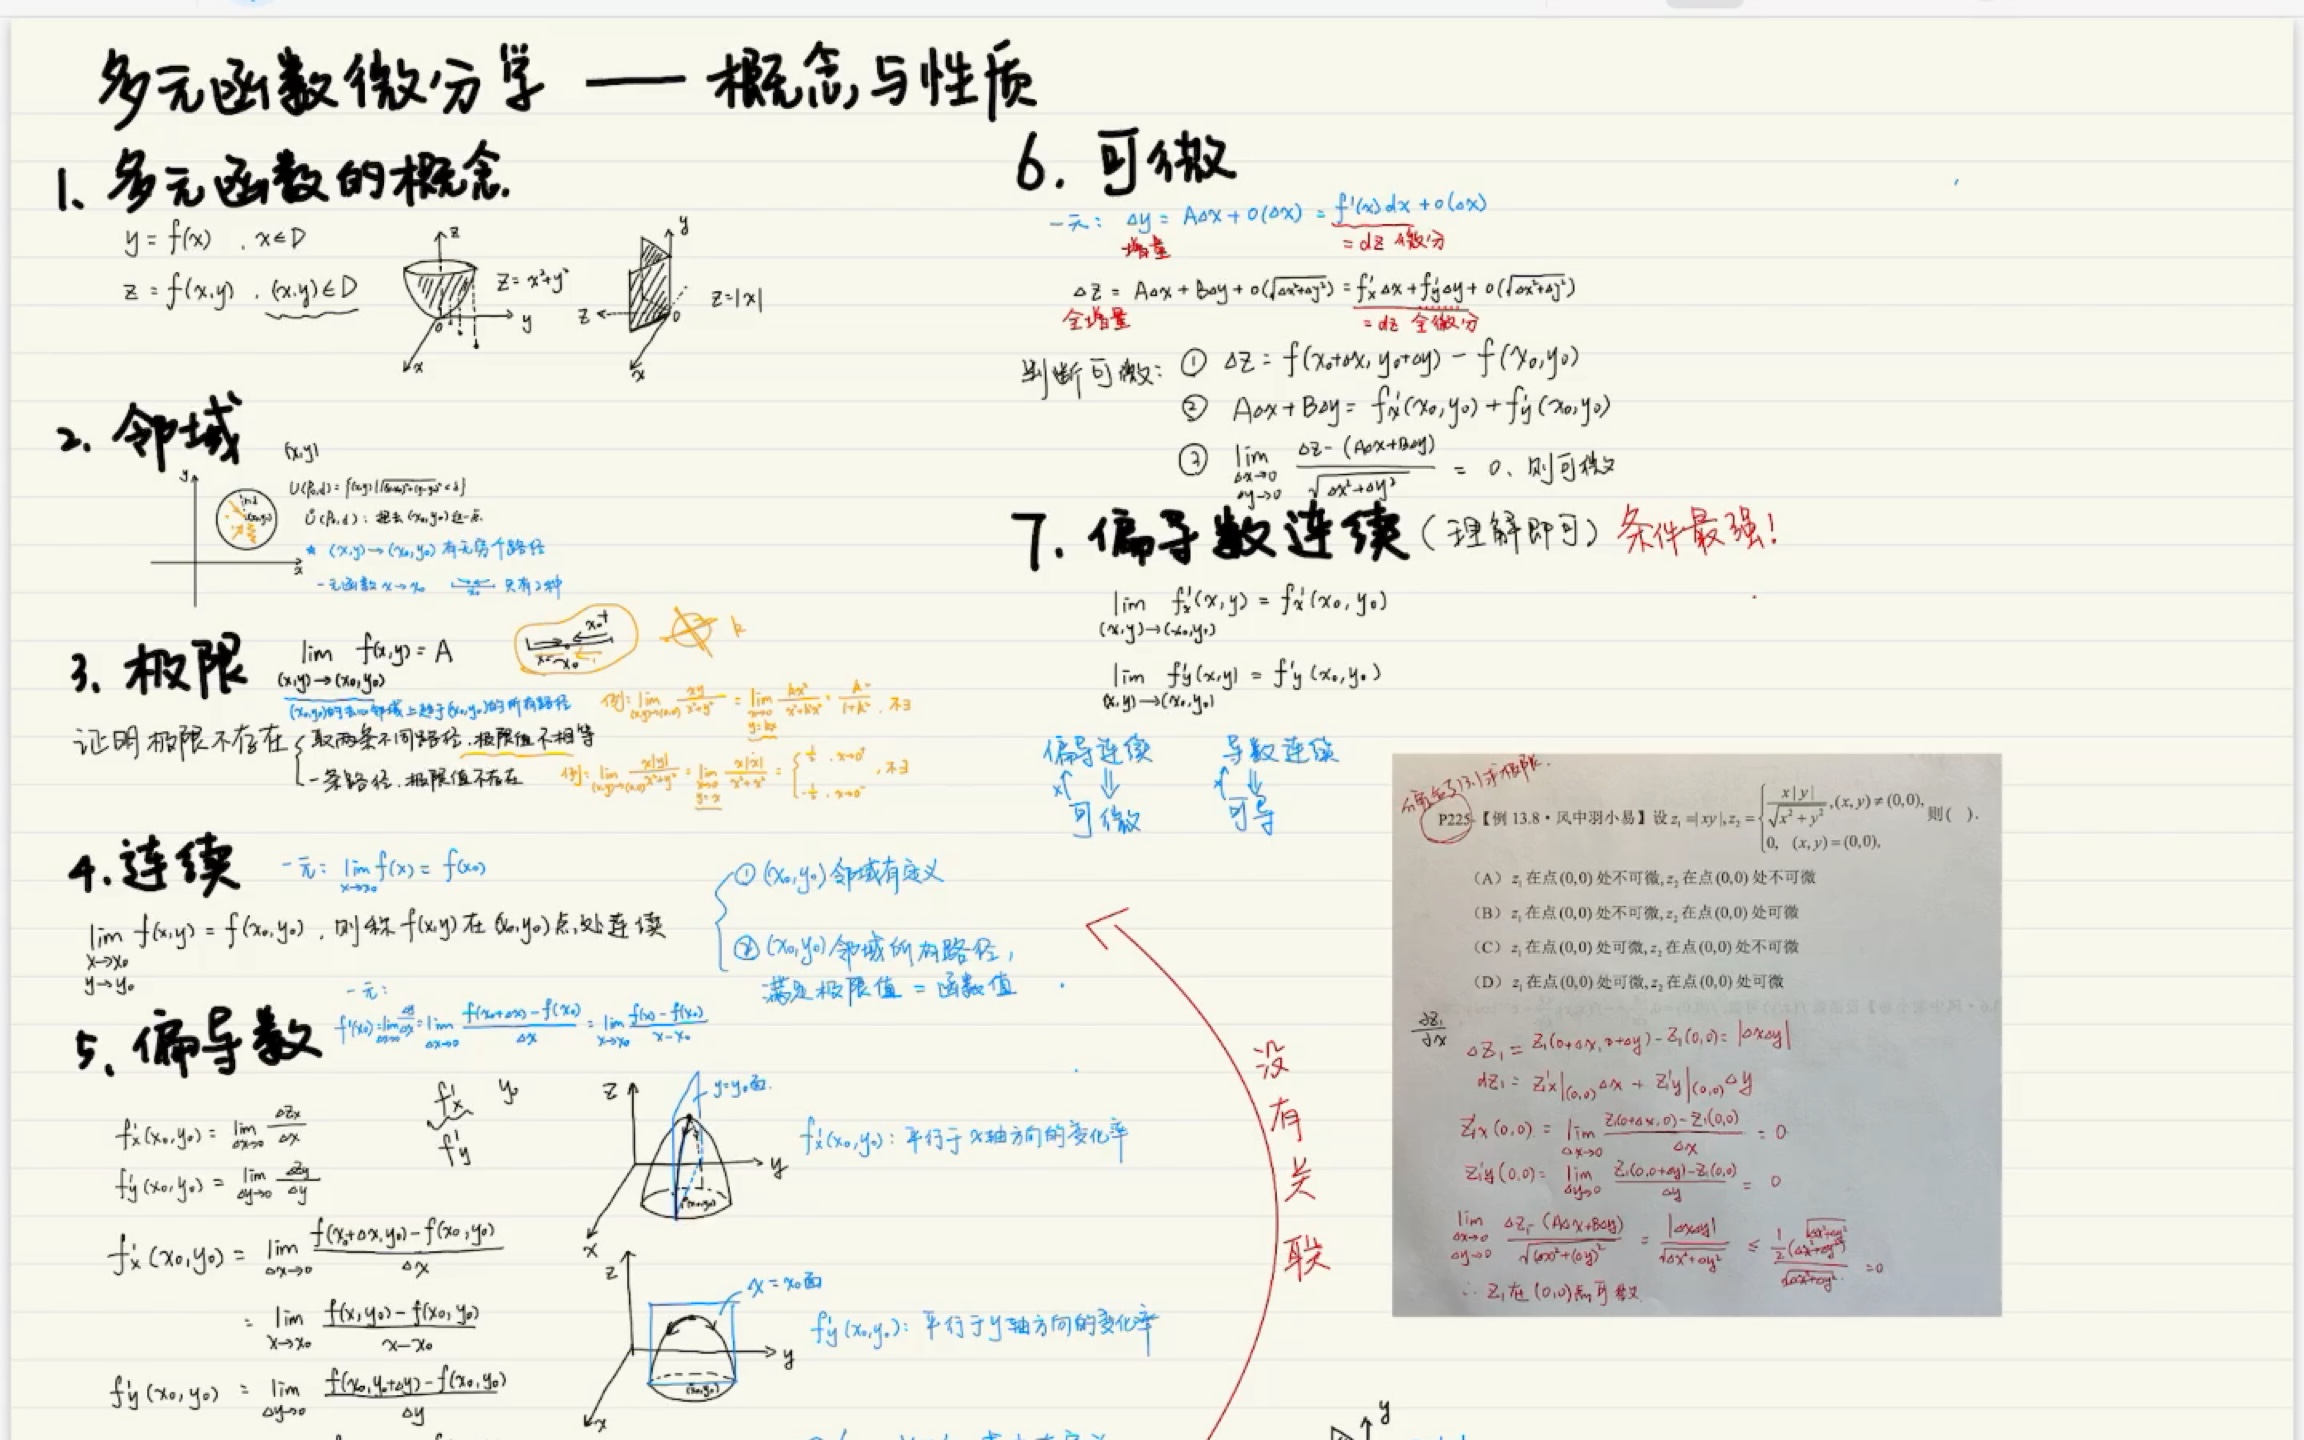 多元函数微分学 — 概念与性质
1. 多元函数的概念
y = f(x) , x∈D
z = f(x,y) , (x,y)∈D
z
z = x²+y²
o
y
x
y
z=|x|
z
o
x
2. 邻域
(x,y)
y
x
Ů(P₀,δ): 把去(x₀,y₀)这一点
* (x,y)→(x₀,y₀) 有无穷个路径
一元函数 x→x₀ 只有2种
3. 极限
lim f(x,y) = A
(x,y)→(x₀,y₀)
(x₀,y₀)的去心邻域上趋于(x₀,y₀)的所有路径
证明极限不存在 { 取两条不同路径, 极限值不相等
一条路径, 极限值不存在
k
例: lim(x,y)→(0,0) xy/(x²+y²) = lim(x→0, y=kx) kx²/(x²+k²x²) = k/(1+k²), 不∃
例: lim(x,y)→(0,0) x|y|/(x²+y²) = lim(x→0, y=x) x|x|/(x²+x²) = { ½, x→0⁺
-½, x→0⁻ , 不∃
4. 连续
一元: lim(x→x₀) f(x) = f(x₀)
lim f(x,y) = f(x₀,y₀) , 则称 f(x,y) 在 (x₀,y₀) 点处连续
x→x₀
y→y₀
① (x₀,y₀) 邻域有定义
② (x₀,y₀) 邻域所有路径,
满足极限值 = 函数值
5. 偏导数
一元:
f'(x₀) = lim(Δx→0) Δy/Δx = lim(Δx→0) (f(x₀+Δx) - f(x₀))/Δx = lim(x→x₀) (f(x) - f(x₀))/(x-x₀)
f'x(x₀,y₀) = lim(Δx→0) Δzx/Δx
f'y(x₀,y₀) = lim(Δy→0) Δzy/Δy
f'x y₀
f'y
f'x(x₀,y₀) = lim(Δx→0) (f(x₀+Δx,y₀) - f(x₀,y₀))/Δx
= lim(x→x₀) (f(x,y₀) - f(x₀,y₀))/(x-x₀)
f'y(x₀,y₀) = lim(Δy→0) (f(x₀,y₀+Δy) - f(x₀,y₀))/Δy
z
y=y₀面
y
(x₀,y₀)
x
f'x(x₀,y₀): 平行于x轴方向的变化率
z
x=x₀面
y
(x₀,y₀)
x
f'y(x₀,y₀): 平行于y轴方向的变化率
没有关联
6. 可微
一元: Δy = AΔx + o(Δx) = f'(x)dx + o(Δx)
增量 = dz 微分
Δz = AΔx + BΔy + o(√(Δx²+Δy²)) = f'xΔx + f'yΔy + o(√(Δx²+Δy²))
全增量 = dz 全微分
判断可微: ① Δz = f(x₀+Δx, y₀+Δy) - f(x₀,y₀)
② AΔx + BΔy = f'x(x₀,y₀) + f'y(x₀,y₀)
③ lim(Δx→0, Δy→0) (Δz - (AΔx+BΔy))/√(Δx²+Δy²) = 0, 则可微
7. 偏导数连续 (理解即可) 条件最强!
lim f'x(x,y) = f'x(x₀,y₀)
(x,y)→(x₀,y₀)
lim f'y(x,y) = f'y(x₀,y₀)
(x,y)→(x₀,y₀)
偏导连续 导数连续
x⇑ ⇓ x⇑ ⇓
可微 可导
P225【例 13.8·风中羽小易】设 z₁=|xy|, z₂= { x|y|/√(x²+y²), (x,y)≠(0,0), 则( ).
0, (x,y)=(0,0),
(A) z₁在点(0,0)处不可微, z₂在点(0,0)处不可微
(B) z₁在点(0,0)处不可微, z₂在点(0,0)处可微
(C) z₁在点(0,0)处可微, z₂在点(0,0)处不可微
(D) z₁在点(0,0)处可微, z₂在点(0,0)处可微
∂z₁/∂x
Δz₁ = z₁(0+Δx, 0+Δy) - z₁(0,0) = |ΔxΔy|
dz₁ = z'₁x|(0,0) Δx + z'₁y|(0,0) Δy
z'₁x(0,0) = lim(Δx→0) (z₁(0+Δx,0) - z₁(0,0))/Δx = 0
z'₁y(0,0) = lim(Δy→0) (z₁(0,0+Δy) - z₁(0,0))/Δy = 0
lim(Δx→0, Δy→0) (Δz₁ - (AΔx+BΔy))/√((Δx)²+(Δy)²) = |ΔxΔy|/√(Δx²+Δy²) ≤ ½(Δx²+Δy²)/√(Δx²+Δy²) = 0
∴ z₁在(0,0)点可微
y